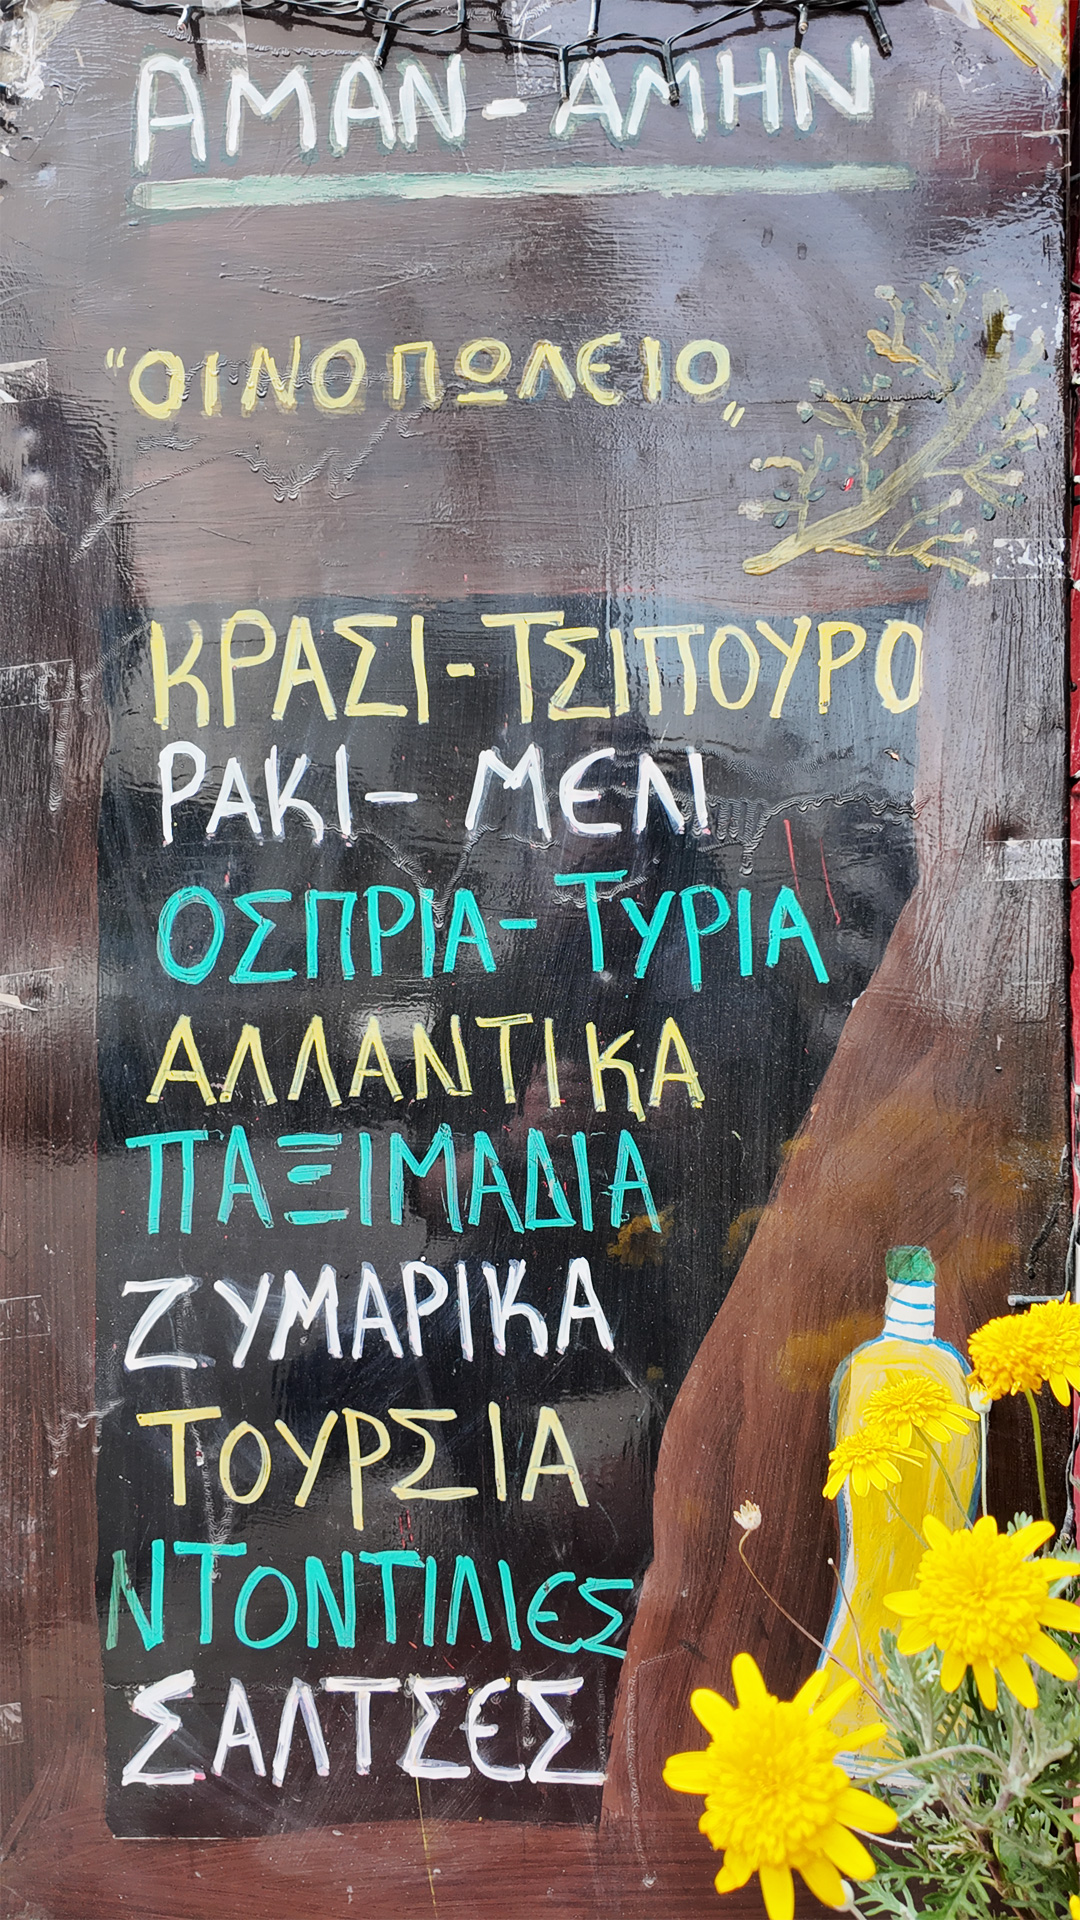 ΑΜΑΝ-ΑΜΗΝ
"ΟΙΝΟΠΩΛΕΙΟ„
ΚΡΑΣΙ-ΤΣΙΠΟΥΡΟ
ΡΑΚΙ- ΜΕΛΙ
ΟΣΠΡΙΑ-ΤΥΡΙΑ
ΑΛΛΑΝΤΙΚΑ
ΠΑΞΙΜΑΔΙΑ
ΖΥΜΑΡΙΚΑ
ΤΟΥΡΣΙΑ
ΝΤΟΝΤΙΛΙΕΣ
ΣΑΛΤΣΕΣ